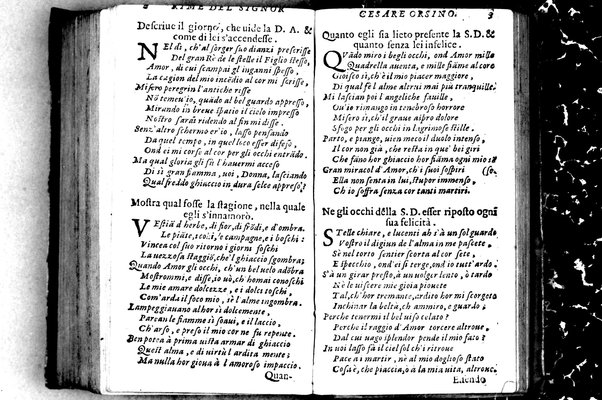 2 RIME DEL SIGNOR
Descriue il giorno, che uide la D. A. &
come di lei s'accendesse.
NEl dì, ch'al sorger suo dianzi prescrisse
Del gran Rè de le stelle il Figlio stesso,
Amor, di cui scampai gl'inganni spesso,
La cagion del mio incēdio al cor mi scrisse,
Misero peregrin l'antiche risse
Nō temeu'io, quādo al bel guardo appresso,
Mirando in breue spatio il cielo impresso
Nostro sarai ridendo al fin mi disse.
Senz'altro schermo er'io, lasso pensando
Da quel tempo, in quel loco esser difeso,
Ond'ei mi corse al cor per gli occhi entrādo.
Ma qual gloria gli sìe l'hauermi acceso
Di sì gran fiamma, uoi, Donna, lasciando
Qual freddo ghiaccio in dura selce appreso?
Mostra qual fosse la stagione, nella quale
egli s'innamorò.
VEstiā d'herbe, di fior, di frōdi, e d'ombra.
Le piāte, i colli, e campagne, e i boschi:
Vincea col suo ritorno i giorni foschi
La uezzosa stagiō, che'l ghiaccio sgombra;
Quando Amor gli occhi, ch'un bel uelo adōbra
Mostrommi, e disse, io uò, ch'homai conoschi
Le mie amare dolcezze, e i dolci toschi,
Com'arda il foco mio, i è l'alme ingombra.
Lampeggiauano alhor sì dolcemente,
Parean le fiamme sì soaui, e il laccio,
Ch'arso, e preso il mio cor ne fu repente.
Ben potea à prima uista armar di ghiaccio
Quest'alma, e di uirtù l'ardita mente;
Ma nulla hor gioua à l'amoroso impaccio.
Quan-
CESARE ORSINO. 3
Quanto egli sia lieto presente la S.D. &
quanto senza lei infelice.
QVādo miro i begli occhi, ond'Amor mille
Quadrella auenta, e mille fiāme al core
Gioisco sì, ch'è il mio piacer maggiore,
Di qual se l'alme altrui mai più tranquille.
Mi lascian poi l'angeliche fauille,
Ou'io rimango in tenebroso horrore
Misero sì, ch'il graue aspro dolore
Sfogo per gli occhi in lagrimose stille.
Parto, e piango, uien meco il duolo intenso,
Il cor non già, che resta in que' bei giri
Che fāno hor ghiaccio hor fiāma ogni mio sē
Gran miracol d'Amor, ch'i suoi sospiri (so.
Ella non senta in lui, stupor immenso,
Ch'io soffra senza cor tanti martiri.
Ne gli occhi della S.D. esser riposto ogni
sua felicità.
STelle chiare, e lucenti ah s'à un sol guardo
Vostro il digiun de l'alma in me pascete,
Se nel torto sentier scorta al cor sete,
E specchio, ond'ei si terge, ond'io tutt'ardo.
S'à un girar presto, à un uolger lento, ò tardo
Nè le uiscere mie gioia piouete
Tal, ch'hor tremante, ardito hor mi scorgete
Inchinar la beltà, ch'ammiro, e guardo;
Perche tenermi il bel uiso celato?
Perche il raggio d'Amor torcere altroue,
Dal cui uago splendor pende il mio fato?
In uoi lasso fà il ciel sol ch'i ritroue
Pace ai martir, nè al mio doglioso stato
Cosa è, che piaccia, ò à la mia uita, altroue.
Essendo